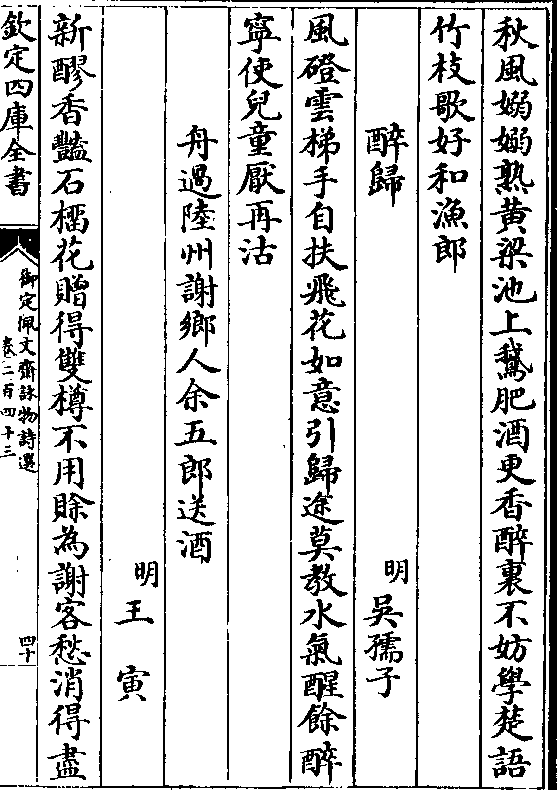 秋風嫋嫋熟黄粱池上鵞肥酒更香醉裏不妨學楚語
竹枝歌好和漁郎
醉歸
明吳孺子
風磴雲梯手自扶飛花如意引歸途莫教水氣醒餘醉
寧使兒童厭再沽
舟過陸州謝鄉人余五郎送酒
明王寅
新醪香豔石榴花贈得雙樽不用賖為謝客愁消得盡
欽定四庫全書
御定佩文齋詠物詩選
卷二百四十三
四十